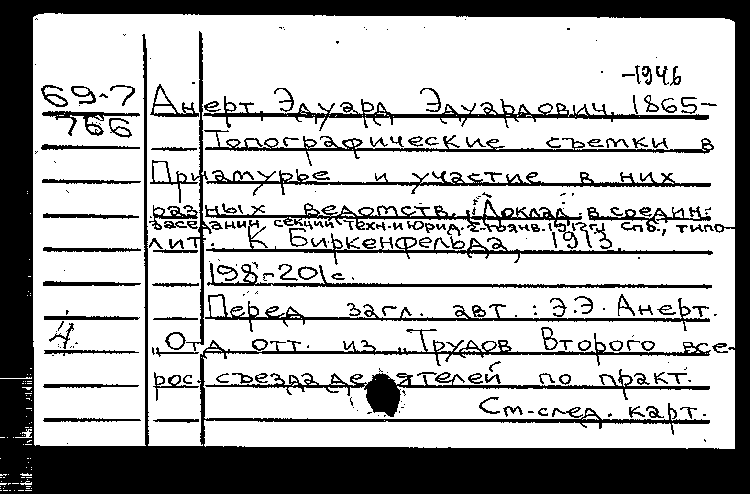 -1946
69-7 Анерт, Эдуард Эдуардович, 1865-
766 Топографические съемки в
Приамурье и участие в них
разных ведомств. (Доклад в соедин.
заседании секций техн. и юрид. 1912г.) Спб., типо-
лит. К. Биркенфельда, 1913.
198-201с.
Перед загл. авт.: Э.Э. Анерт.
4 "Отд. отт. из "Трудов Второго все-
рос. съезда деятелей по практ.
См.след. карт.